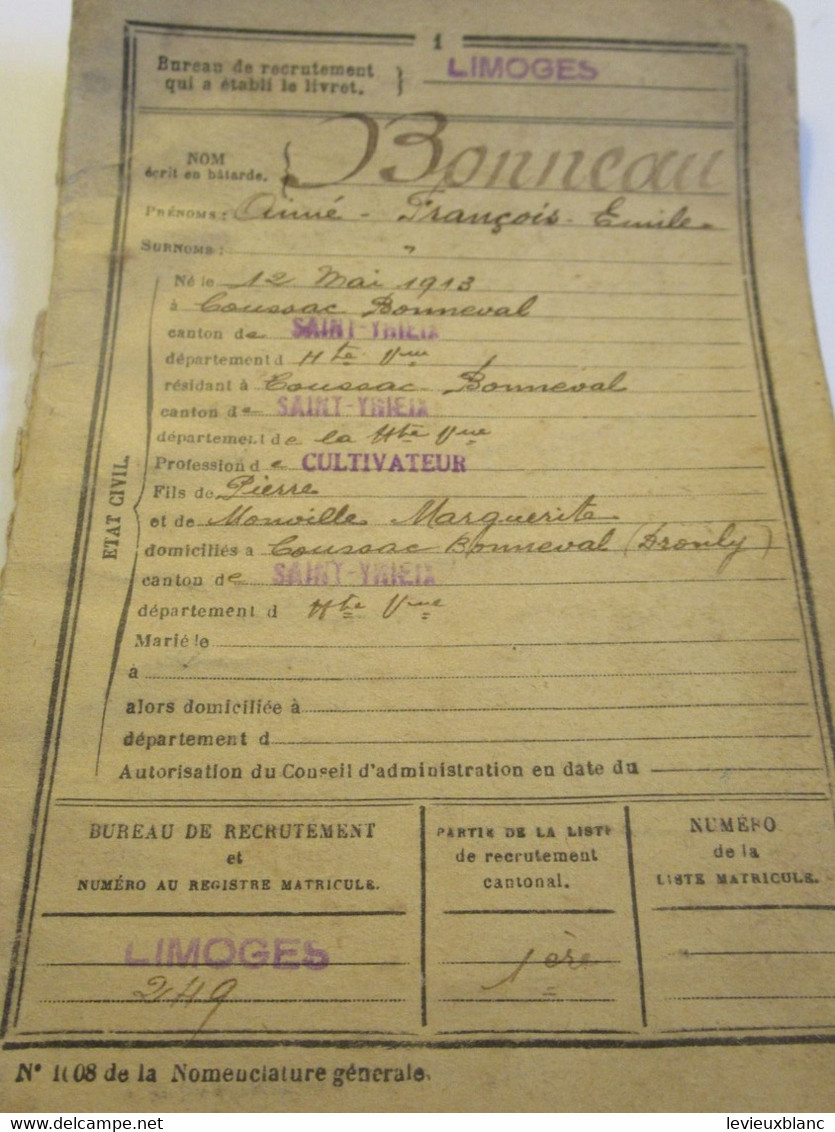 1
Bureau de recrutement
qui a établi le livret. } LIMOGES
NOM
écrit en bâtarde. { Bonneau
PRÉNOMS : Aimé - François - Emile
SURNOMS : "
Né le 12 Mai 1913
à Coussac Bonneval
canton de SAINT-YRIEIX
département d Hte Vne
résidant à Coussac Bonneval
canton de SAINT-YRIEIX
département de la Hte Vne
Profession de CULTIVATEUR
Fils de Pierre
et de Monville Marguerite
domiciliés à Coussac Bonneval (Drouly)
canton de SAINT-YRIEIX
département d Hte Vne
ETAT CIVIL.
Marié le
à
alors domiciliée à
département d
Autorisation du Conseil d'administration en date du
BUREAU DE RECRUTEMENT
et
NUMÉRO AU REGISTRE MATRICULE.
LIMOGES
249
PARTIE DE LA LISTE
de recrutement
cantonal.
1ère
NUMÉRO
de la
LISTE MATRICULE.
N° 1(08 de la Nomenclature générale.
www.delcampe.net
levieuxblanc